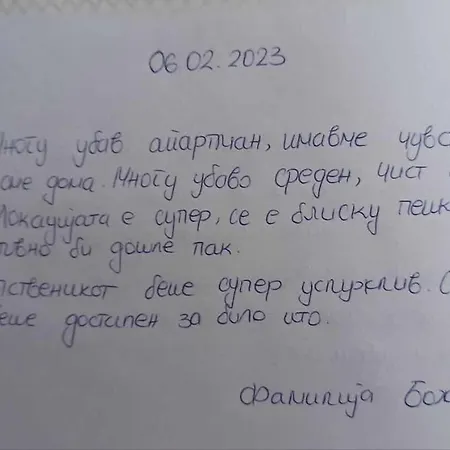 06.02.2023
Многу убав апартман, имавме чувс
сме дома. Многу убаво среден, чист
Локацијата е супер, се е блиску пешк
тивно би дошле пак.
пственикот беше супер услужлив. С
еше достапен за било што.
Фамилија Бож